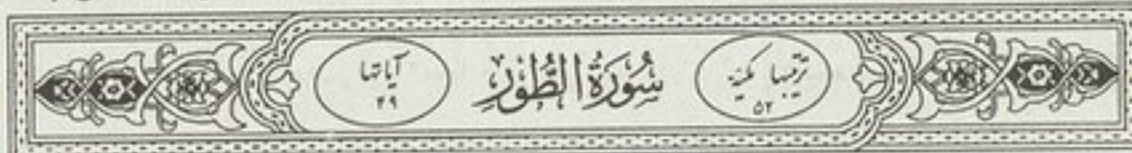 ترتيبها ٥٢ مكية
سُورَةُ الطُّورِ
آياتها ٤٩